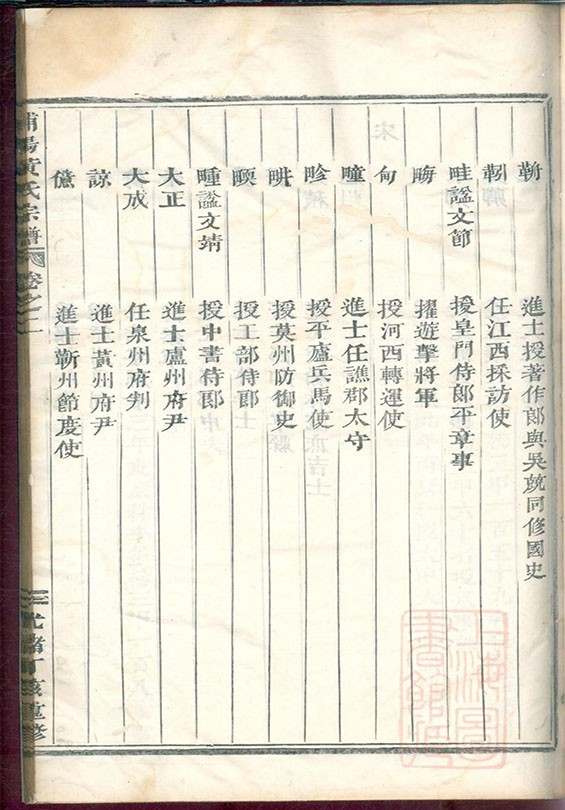 勒 進士授著作郎與吳兢同修國史
靷 任江西採訪使
畦諡文節 授皇門侍郎平章事
畮 擢遊擊將軍
甸 授河西轉運使
疃 進士任譙郡太守
畛 授平廬兵馬使
畊 授莫州防御史
授工部侍郎
畽諡文靖 授中書侍郎
大正 進士廬州府尹
大成 任泉州府判
諒 進士黃州府尹
儻 進士蘄州節度使
浦陽黃氏宗譜 卷之二 光緒丁亥重修
上海圖書館藏